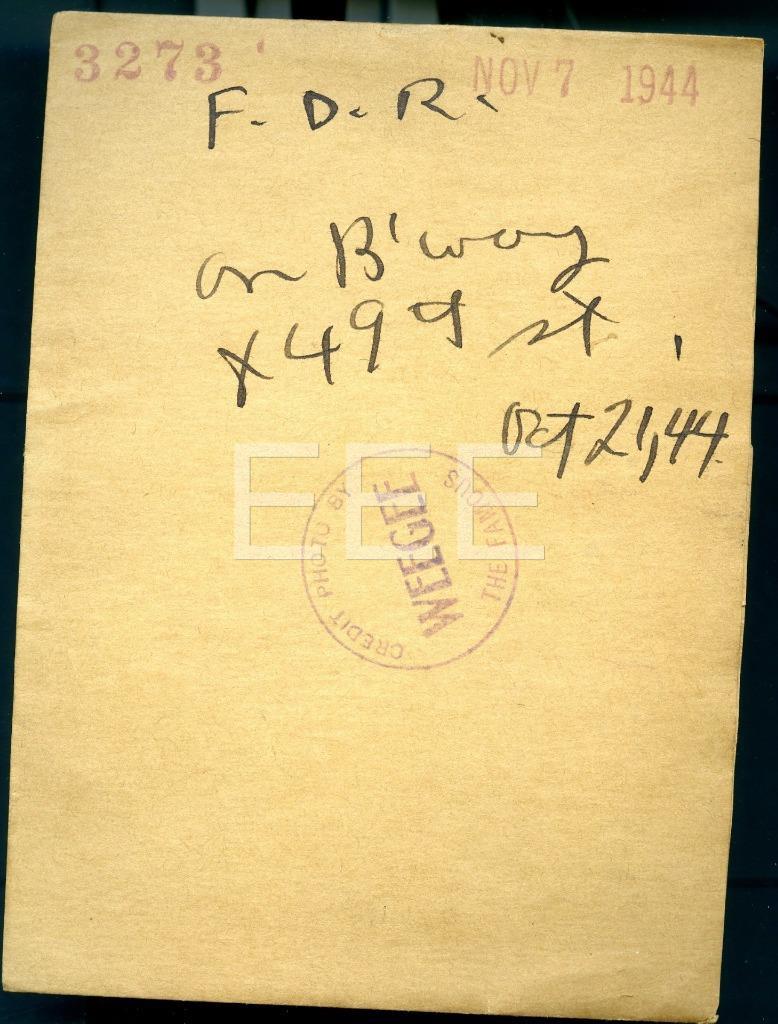 3273 NOV 7 1944
F. D. R.
on B'way
x 49 st.
Oct 21, 44.
EEE
CREDIT PHOTO BY
WEEGEE
THE FAMOUS